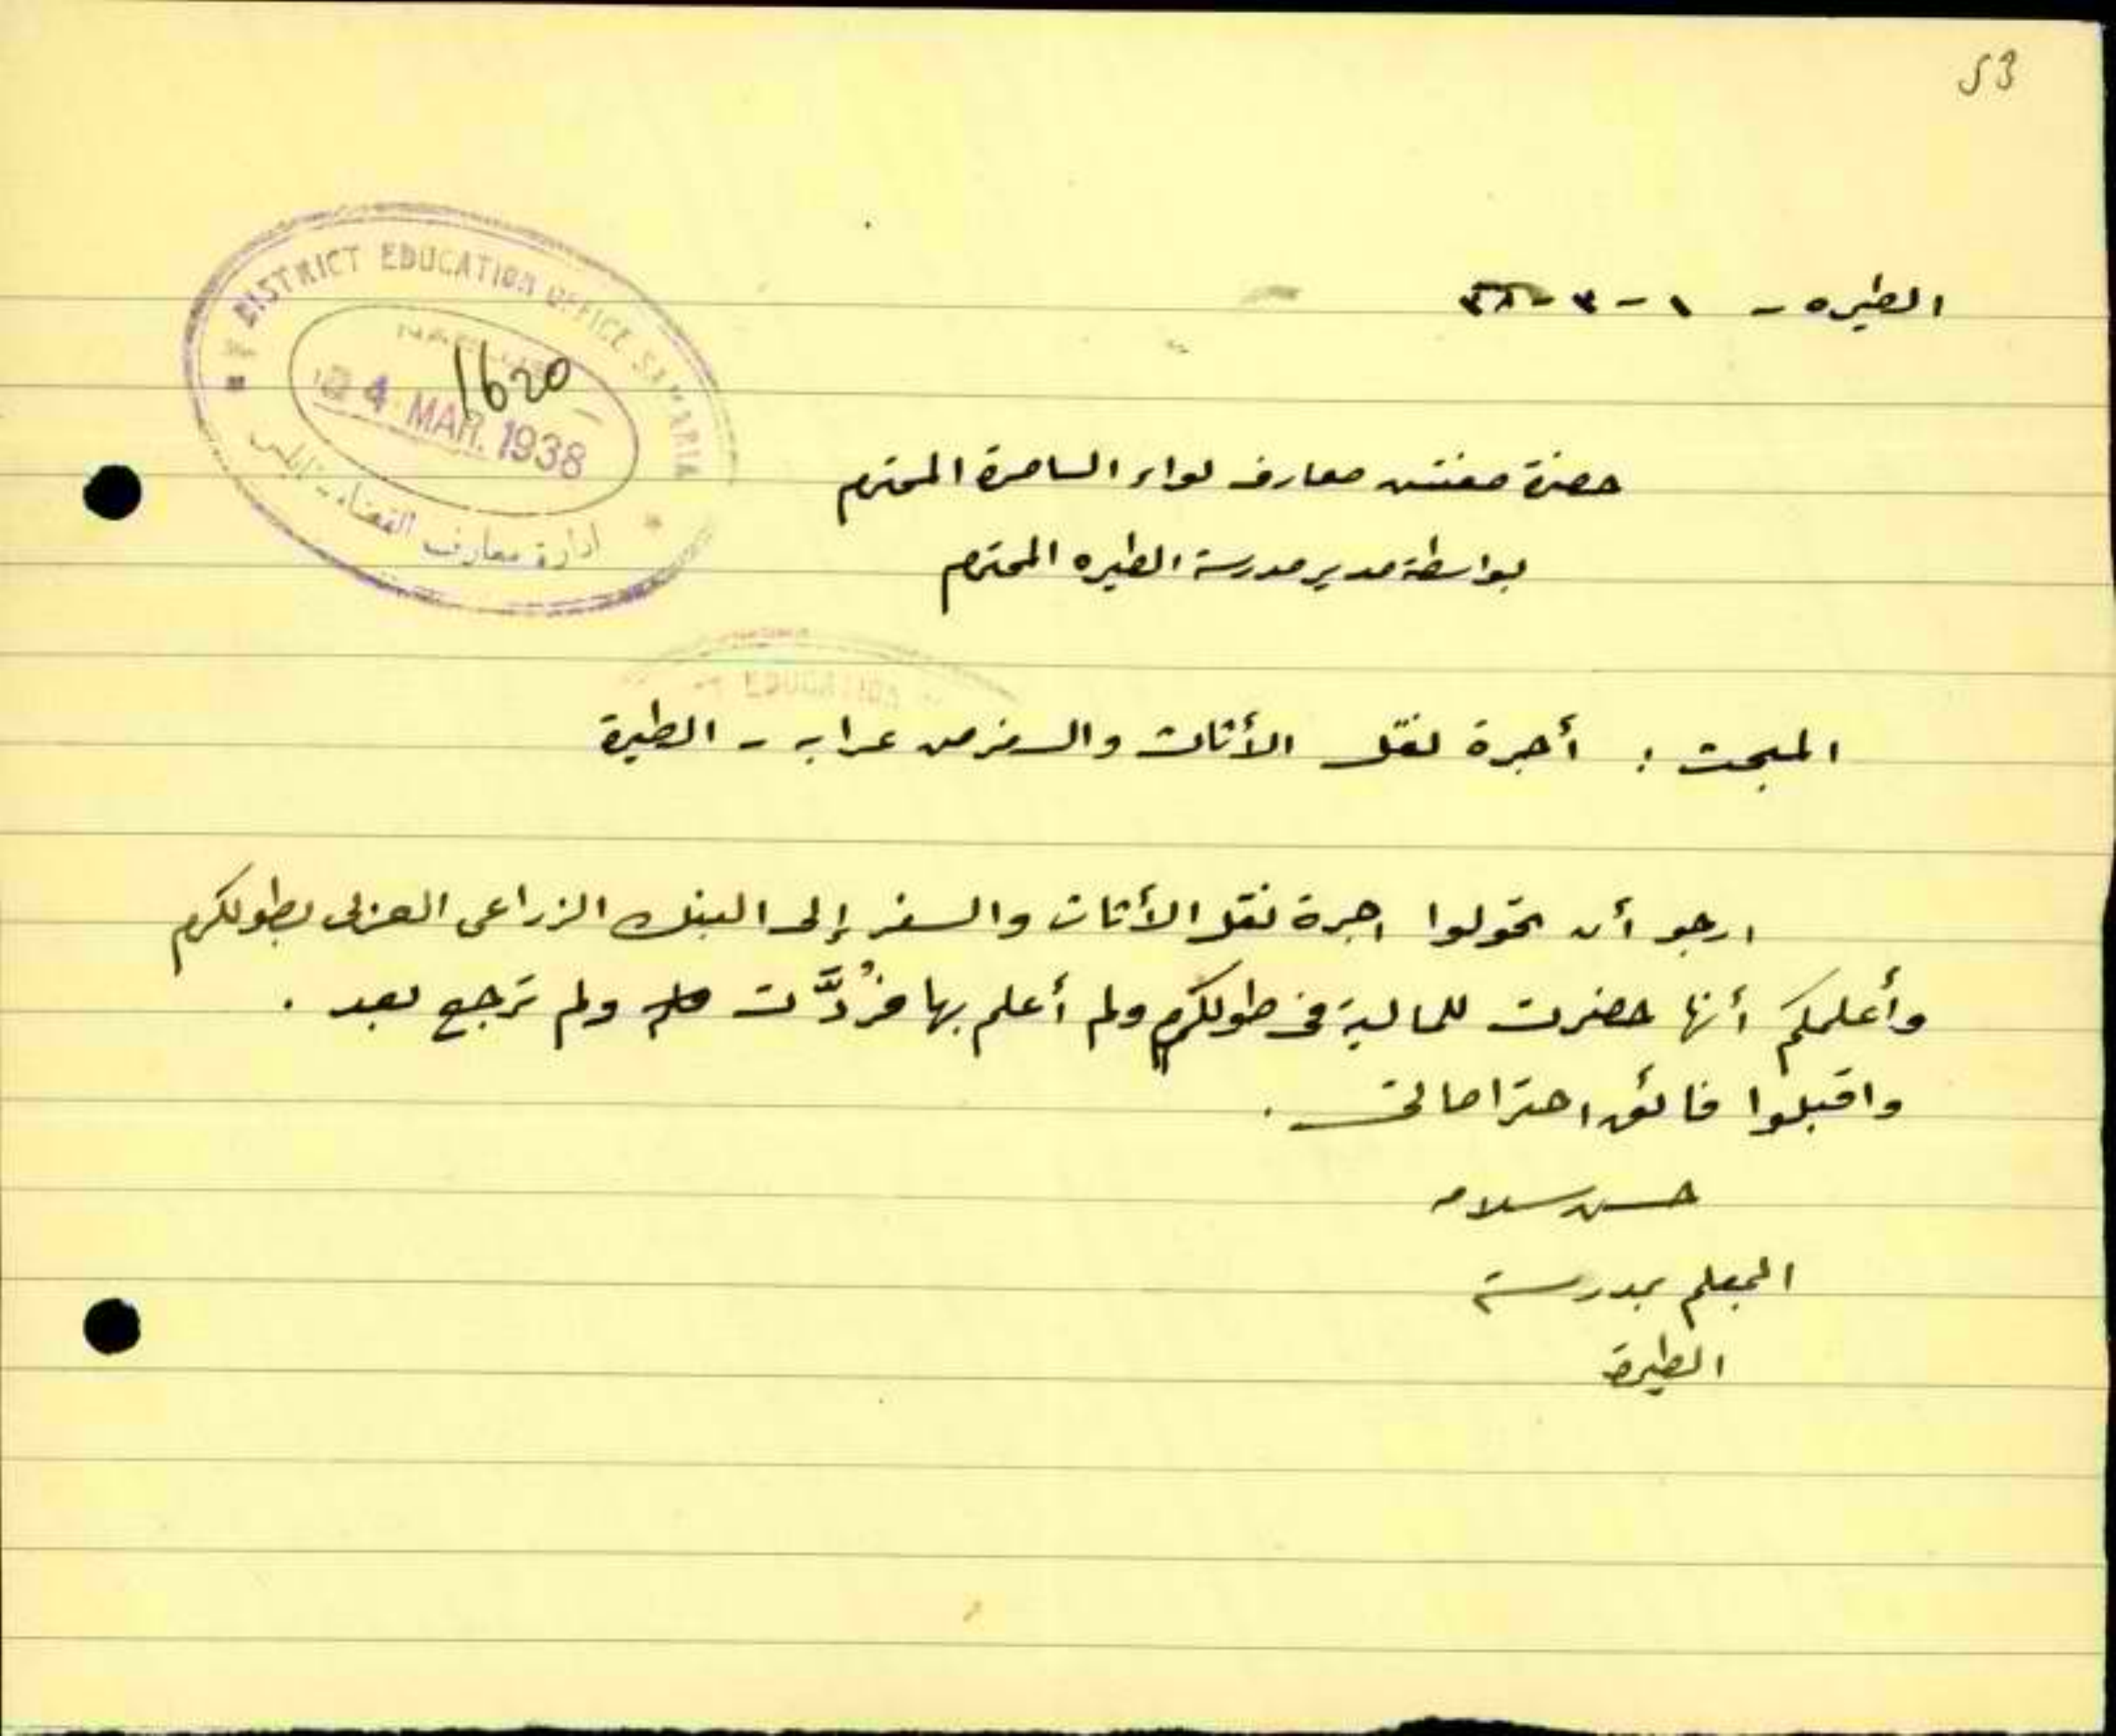 53
الطيره - ١ - ٣ - ٣٨
DISTRICT EDUCATION OFFICE SAMARIA
NABLUS
1620
4 MAR. 1938
ادارة معارف القضاء - نابلس
حضرة مفتش معارف لواء السامرة المحترم
بواسطة مدير مدرسة الطيره المحترم
EDUCATION
المبحث : أجرة نقل الأثاث والسفر من عرابه - الطيرة
ارجو أن تحولوا اجرة نقل الأثاث والسفر إلى البنك الزراعي العربي بطولكرم
وأعلمكم أنها حضرت للمالية في طولكرم ولم أعلم بها فرُدَّت ولم ترجع بعد .
واقبلوا فائق احتراماتي .
حسن سلامه
المعلم بمدرسة
الطيرة